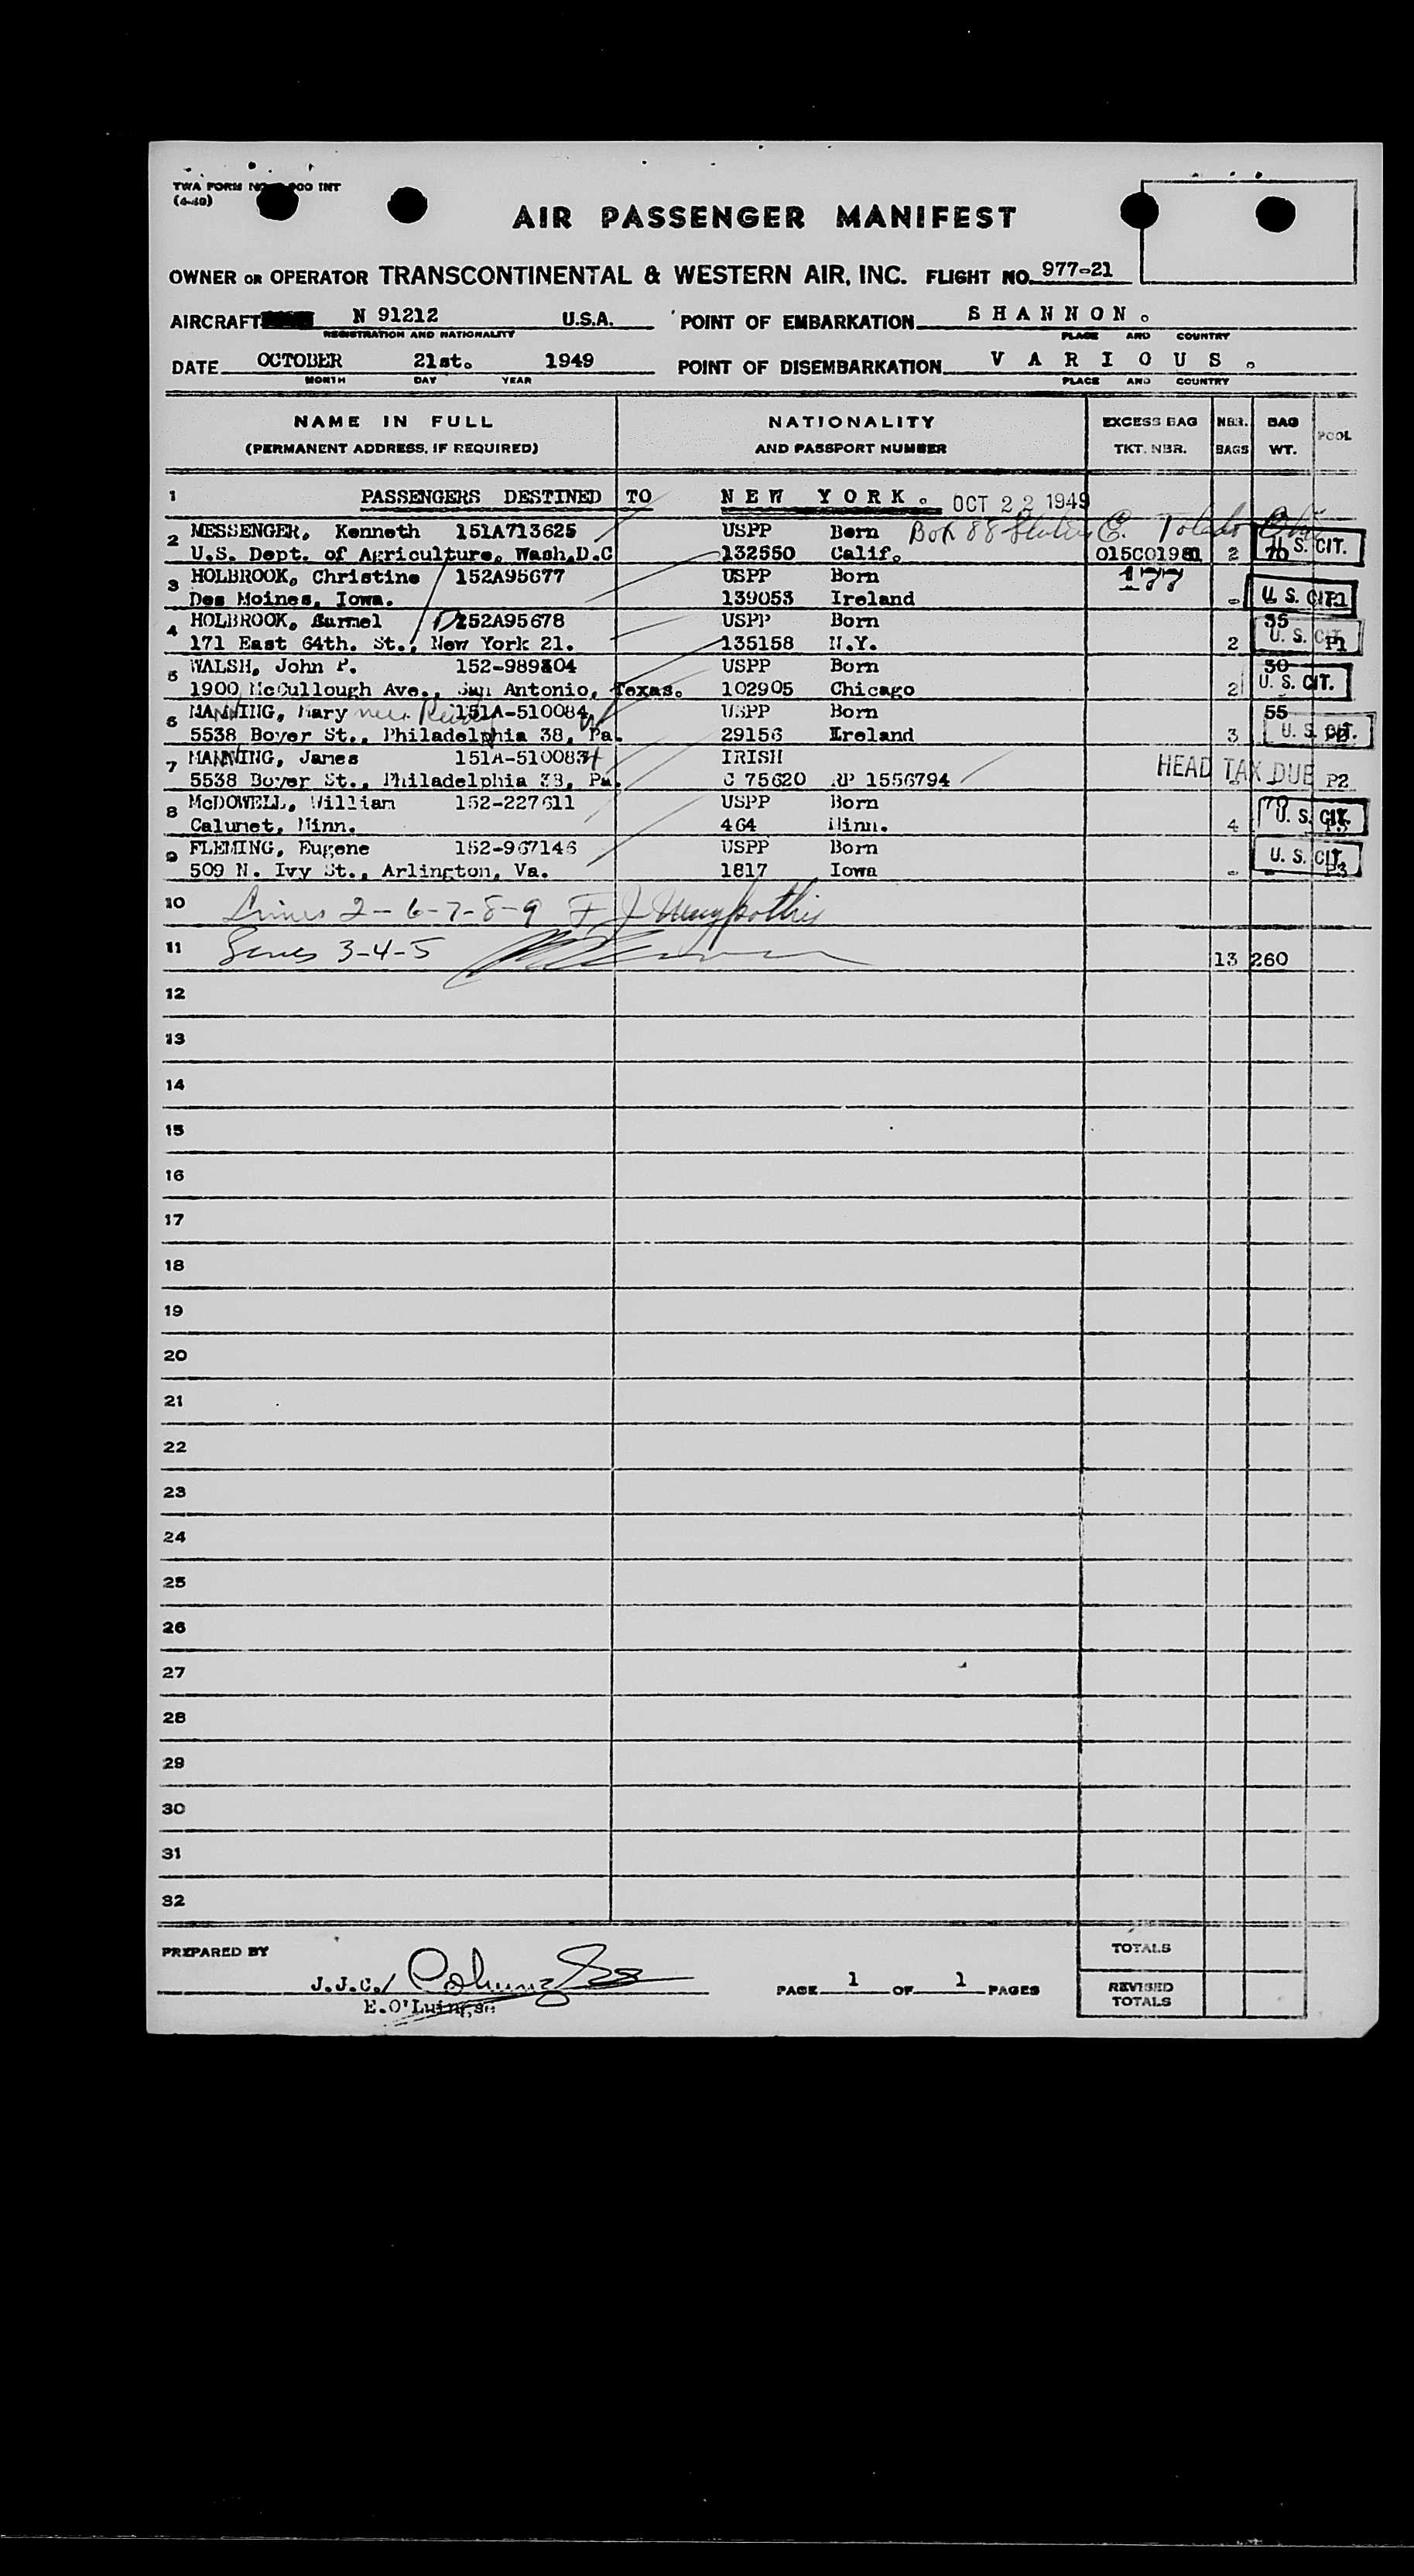 TWA FORM
(4-49)
AIR PASSENGER MANIFEST
OWNER OR OPERATOR TRANSCONTINENTAL & WESTERN AIR, INC. FLIGHT NO. 977-21
AIRCRAFT N 91212 U.S.A. POINT OF EMBARKATION SHANNON.
REGISTRATION AND NATIONALITY PLACE AND COUNTRY
DATE OCTOBER 21st. 1949 POINT OF DISEMBARKATION VARIOUS.
MONTH DAY YEAR PLACE AND COUNTRY
NAME IN FULL NATIONALITY EXCESS BAG NBR. BAG POOL
(PERMANENT ADDRESS, IF REQUIRED) AND PASSPORT NUMBER TKT. NBR. BAGS WT.
1 PASSENGERS DESTINED TO NEW YORK. OCT 22 1949
2 MESSENGER, Kenneth 151A713625 USPP Born Box 88 E. Toledo
U.S. Dept. of Agriculture, Wash,D.C 132550 Calif. 2 70 U. S. CIT.
3 HOLBROOK, Christine 152A95677 USPP Born 177
Des Moines, Iowa. 139053 Ireland - U. S. CIT.
4 HOLBROOK, 152A95678 USPP Born 35
171 East 64th. St., New York 21. 135158 N.Y. 2 U. S. CIT. P1
5 WALSH, John P. USPP Born 30
1900 McCullough Ave., San Antonio, Texas. 102905 Chicago 2 U. S. CIT.
6 MANNING, Mary 151A-510084 USPP Born 55
5538 Boyer St., Philadelphia 38, Pa. 29156 Ireland 3 U. S. CIT.
7 MANNING, James IRISH
5538 Boyer St., Philadelphia 38, Pa. C 75620 RP 1556794 HEAD TAX DUE P2
8 McDOWELL, William 152-227611 USPP Born
Calumet, Minn. 464 Minn. 4 U. S. CIT.
9 FLEMING, Eugene 152-967146 USPP Born
509 N. Ivy St., Arlington, Va. 1817 Iowa - U. S. CIT. P3
10 Lines 2-6-7-8-9
11 Lines 3-4-5 13 260
12
13
14
15
16
17
18
19
20
21
22
23
24
25
26
27
28
29
30
31
32
PREPARED BY TOTALS
J.J.C./ PAGE 1 OF 1 PAGES REVISED
TOTALS